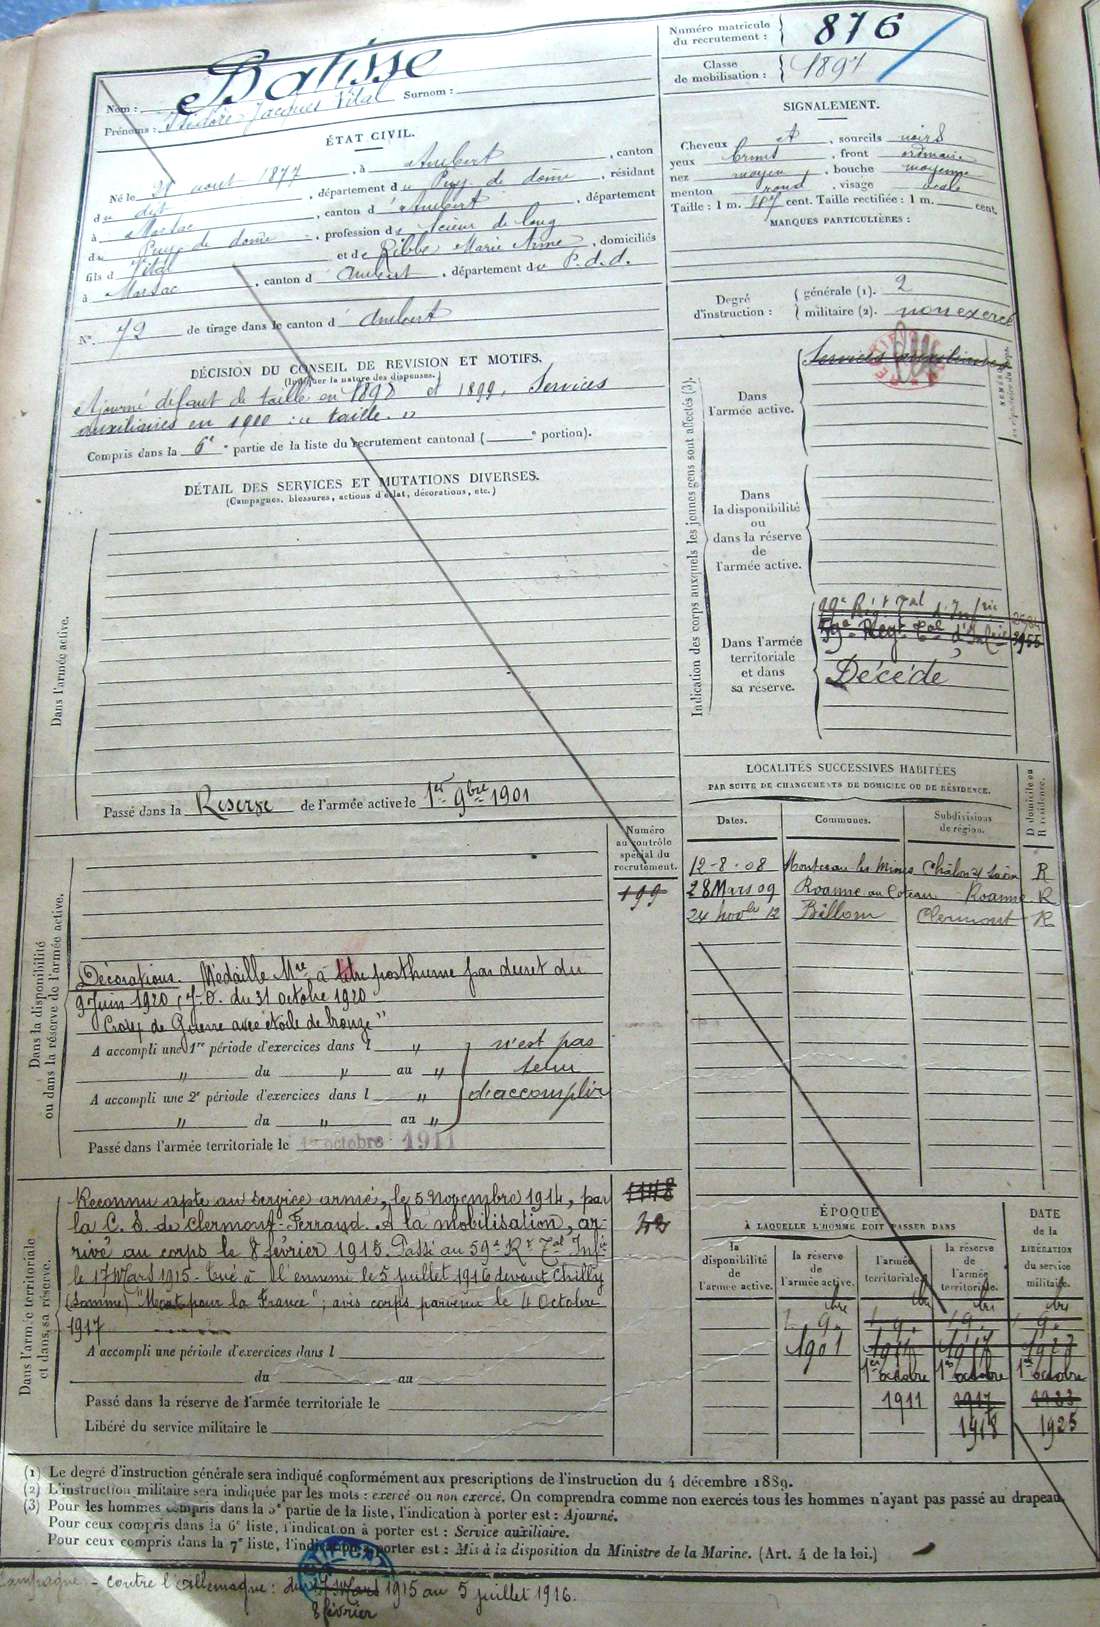 Numéro matricule du recrutement : 876
Classe de mobilisation : 1897
Nom : Batisse
Prénoms : Jacques Vital Surnom :
ÉTAT CIVIL.
Né le 28 aout 1877, à Ambert, canton
du dit, département du Puy-de-dôme, résidant
à Marsac, canton d'Ambert, département
du Puy-de-dôme, profession de Scieur de long
fils d Vital et de Ribbe Marie Anne, domiciliés
à Marsac, canton d Ambert, département du P.d.d.
N° 72 de tirage dans le canton d Ambert
SIGNALEMENT.
Cheveux et, sourcils noirs
yeux bruns, front ordinaire
nez moyen, bouche moyenne
menton rond, visage ovale
Taille : 1 m. cent. Taille rectifiée : 1 m. cent.
MARQUES PARTICULIÈRES :
Degré d'instruction : générale (1). 2
militaire (2). non exercé
DÉCISION DU CONSEIL DE REVISION ET MOTIFS.
(Indiquer la nature des dispenses.)
Ajourné défaut de taille en 1898 et 1899, Services
auxiliaires en 1900 taille.
Compris dans la 6e partie de la liste du recrutement cantonal ( e portion).
DÉTAIL DES SERVICES ET MUTATIONS DIVERSES.
(Campagnes, blessures, actions d'éclat, décorations, etc.)
Dans l'armée active.
Passé dans la Réserve de l'armée active le 1er 9bre 1901
Indication des corps auxquels les jeunes gens sont affectés (3).
Dans l'armée active.
Services auxiliaires
Dans la disponibilité ou dans la réserve de l'armée active.
Dans l'armée territoriale et dans sa réserve.
99e Régt Tal d'Infrie
59e Regt Tal d'Infie
Décédé
LOCALITÉS SUCCESSIVES HABITÉES
PAR SUITE DE CHANGEMENTS DE DOMICILE OU DE RÉSIDENCE.
Dates. Communes. Subdivisions de région. D domicile ou R résidence.
12-8-08 Montceau les Mines Châlon s/ Saône R
28 Mars 09 Roanne au Coteau Roanne R
24 9bre 12 Billom Clermont R
Numéro au contrôle spécial du recrutement.
199
Dans la disponibilité ou dans la réserve de l'armée active.
Décorations. Médaille Mre à titre posthume par decret du
9 Juin 1920 (J.O. du 31 octobre 1920
"Croix de Guerre avec étoile de bronze"
A accompli une 1re période d'exercices dans l " n'est pas
" du " au " tenu
A accompli une 2e période d'exercices dans l " d'accomplir
" du " au "
Passé dans l'armée territoriale le 1er octobre 1911
Dans l'armée territoriale et dans sa réserve.
Reconnu apte au service armé, le 5 Novembre 1914, par
la C. S. de Clermont-Ferrand. A la mobilisation, ar-
rivé au corps le 8 février 1915. Passé au 59e Rt Tal Infie
le 17 Mars 1915. Tué à l'ennemi le 5 juillet 1916 devant Chilly
(Somme) "Mort pour la France"; avis corps parvenu le 4 Octobre
1917
A accompli une période d'exercices dans l
du au
Passé dans la réserve de l'armée territoriale le
Libéré du service militaire le
ÉPOQUE
À LAQUELLE L'HOMME DOIT PASSER DANS
la disponibilité de l'armée active. la réserve de l'armée active. l'armée territoriale. la réserve de l'armée territoriale.
DATE de la LIBÉRATION du service militaire.
1901
1er octobre 1er octobre 1er octobre
1911 1917 1923
1918 1925
(1) Le degré d'instruction générale sera indiqué conformément aux prescriptions de l'instruction du 4 décembre 1889.
(2) L'instruction militaire sera indiquée par les mots : exercé ou non exercé. On comprendra comme non exercés tous les hommes n'ayant pas passé au drapeau.
(3) Pour les hommes compris dans la 5e partie de la liste, l'indication à porter est : Ajourné.
Pour ceux compris dans la 6e liste, l'indication à porter est : Service auxiliaire.
Pour ceux compris dans la 7e liste, l'indication à porter est : Mis à la disposition du Ministre de la Marine. (Art. 4 de la loi.)
Campagne - contre l'allemagne : du 17 Mars 1915 au 5 juillet 1916.
8 février